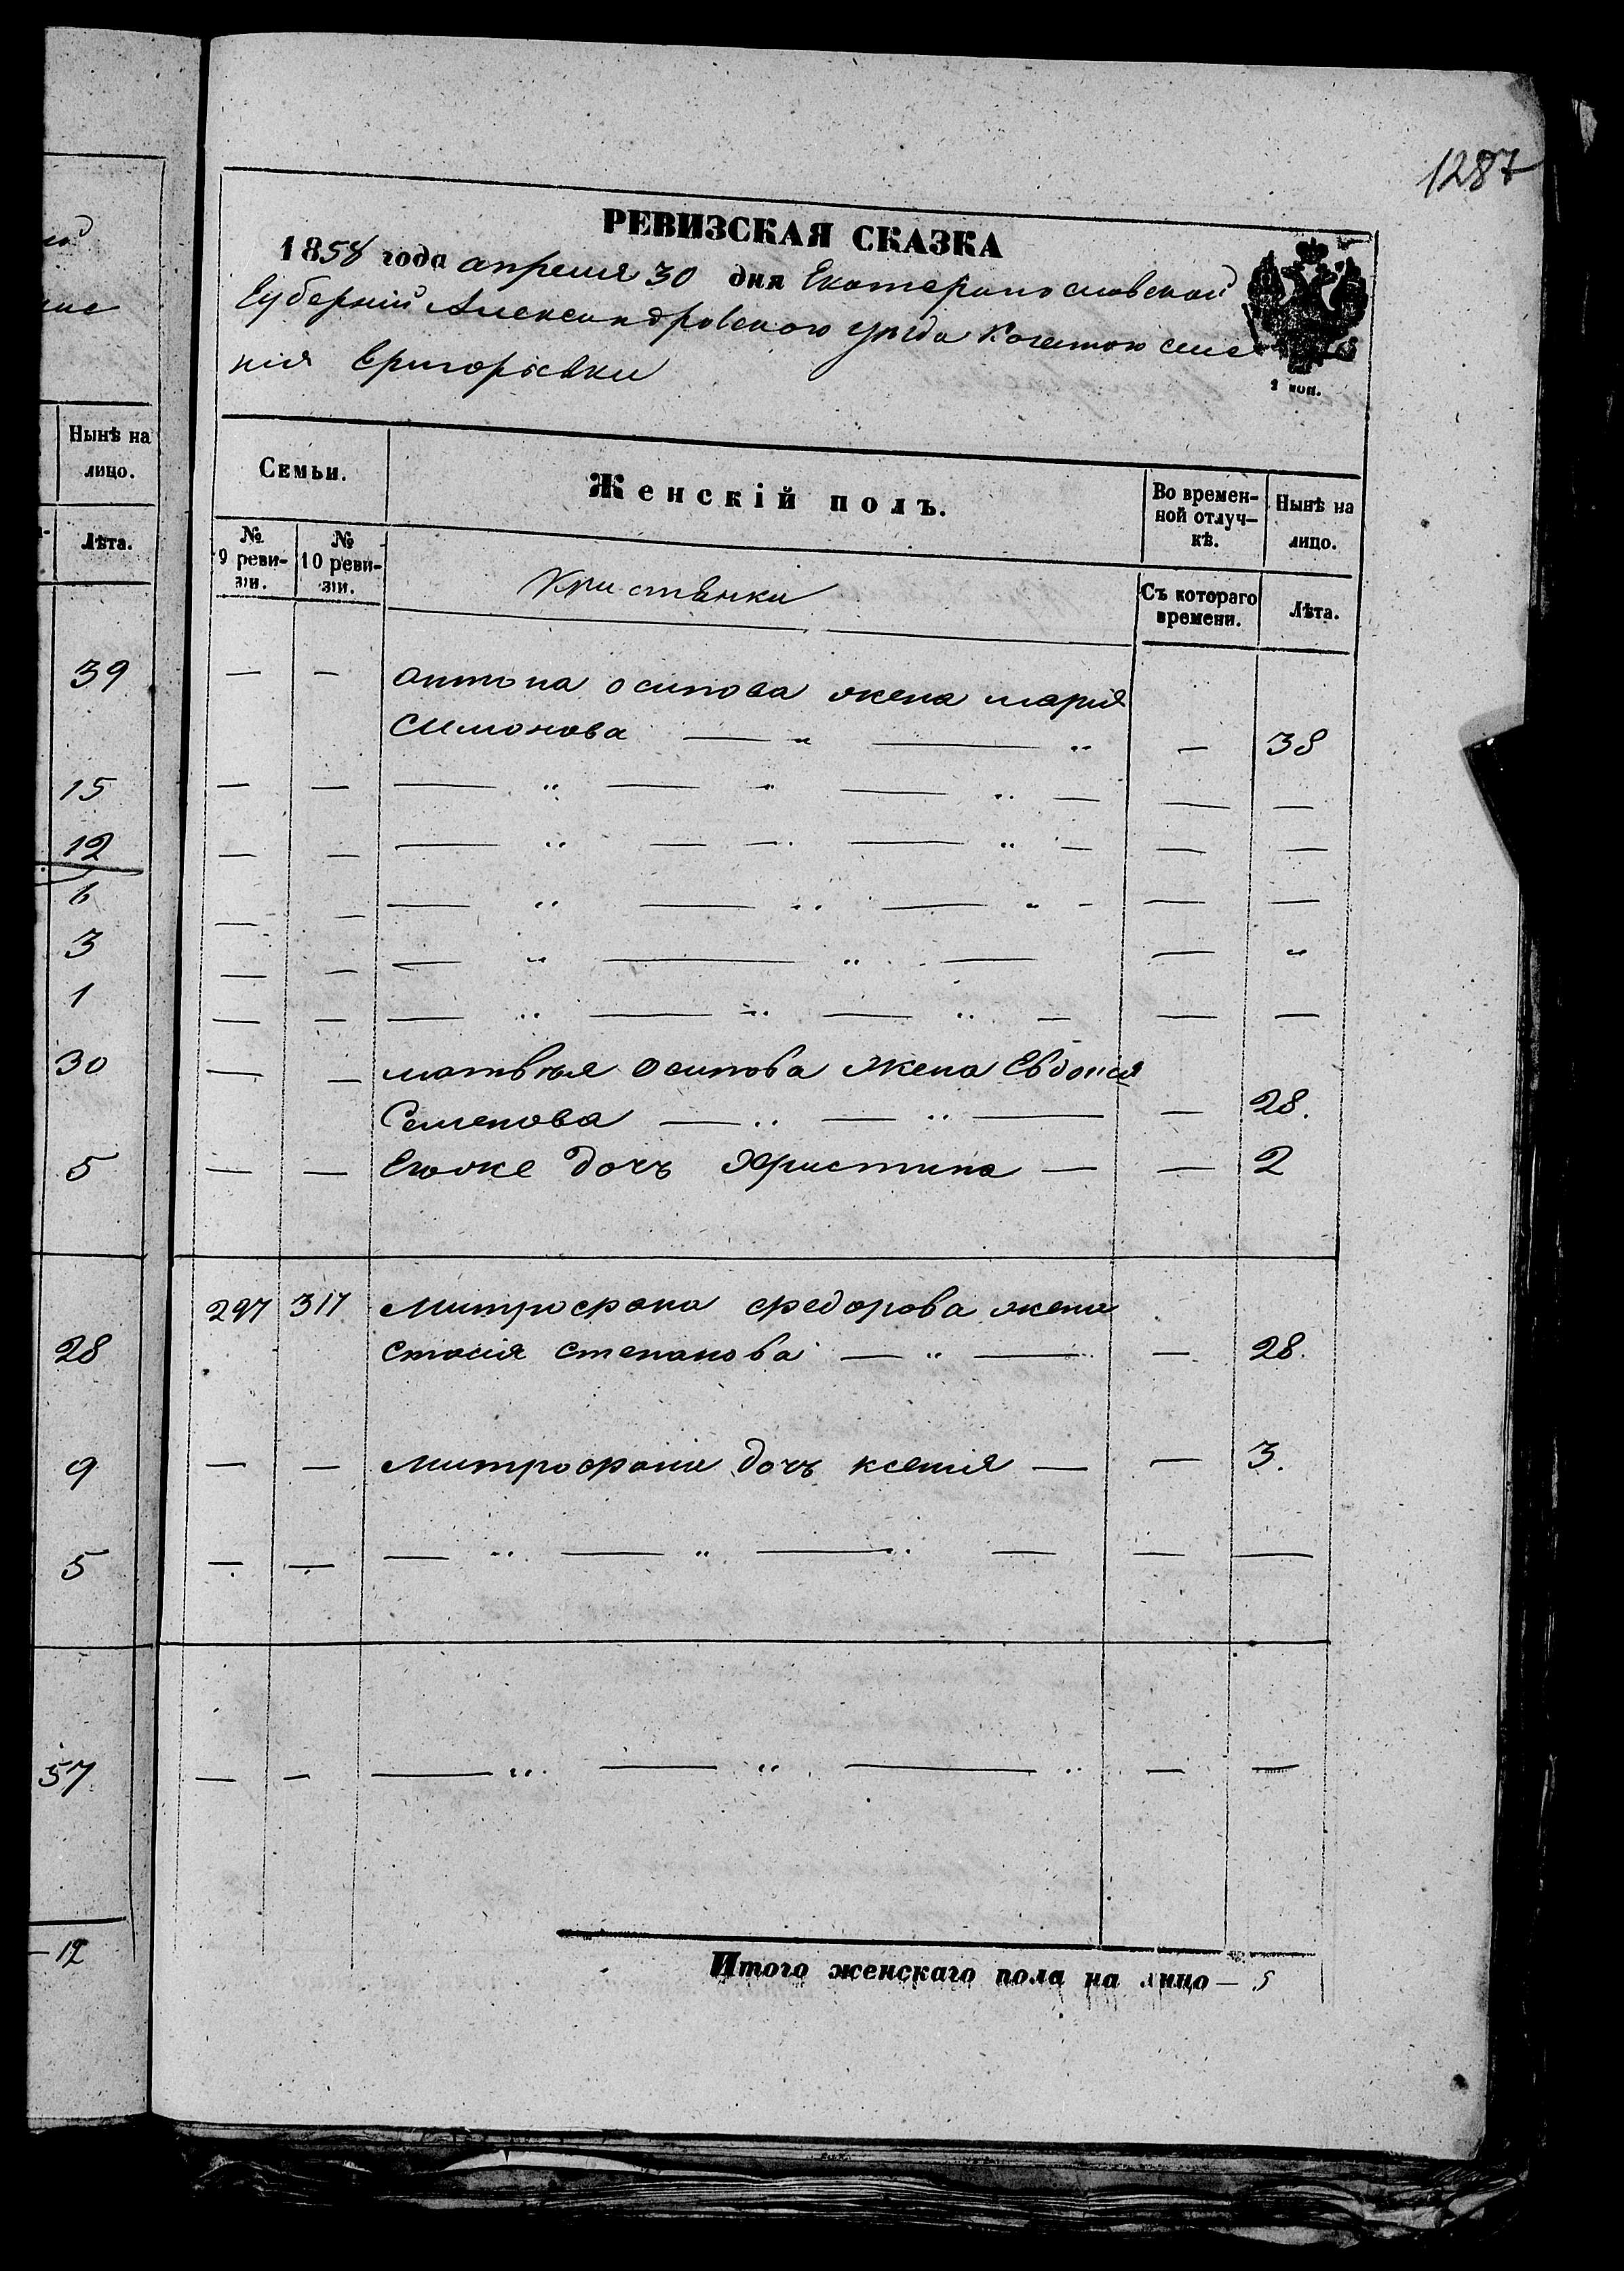 1287
РЕВИЗСКАЯ СКАЗКА
1858 года апреля 30 дня Екатеринославской
Губерніи Александровского уезда селе
нія Григорьевки
2 коп.
Нынѣ на лицо.
Лѣта.
39
15
12
6
3
1
30
5
28
9
5
57
— 12
Семьи.
Женскій полъ.
Во времен-
ной отлуч-
кѣ.
Нынѣ на
лицо.
№
9 реви-
зіи.
№
10 реви-
зіи.
Съ котораго
времени.
Лѣта.
— — антона осипова жена марія
Симонова — „ — „ — 38
— — — „ — „ — „ — — —
— — — „ — — „ — „ — — —
— — — „ — „ — „ - — —
— — — „ — „ — — „
— — — „ — „ — „ — — —
— — матвѣя осипова жена Евдокія
Семенова — „ — „ — — 28.
— — Егоже дочь Христина — — 2
297 317 Митрофана федорова жена
степанова — „ — — 28.
— — Митрофана дочь ксенія — — 3.
— — — „ — „ — „ — — —
— — — „ — „ — „ — —
Итого женскаго пола на лицо — 5